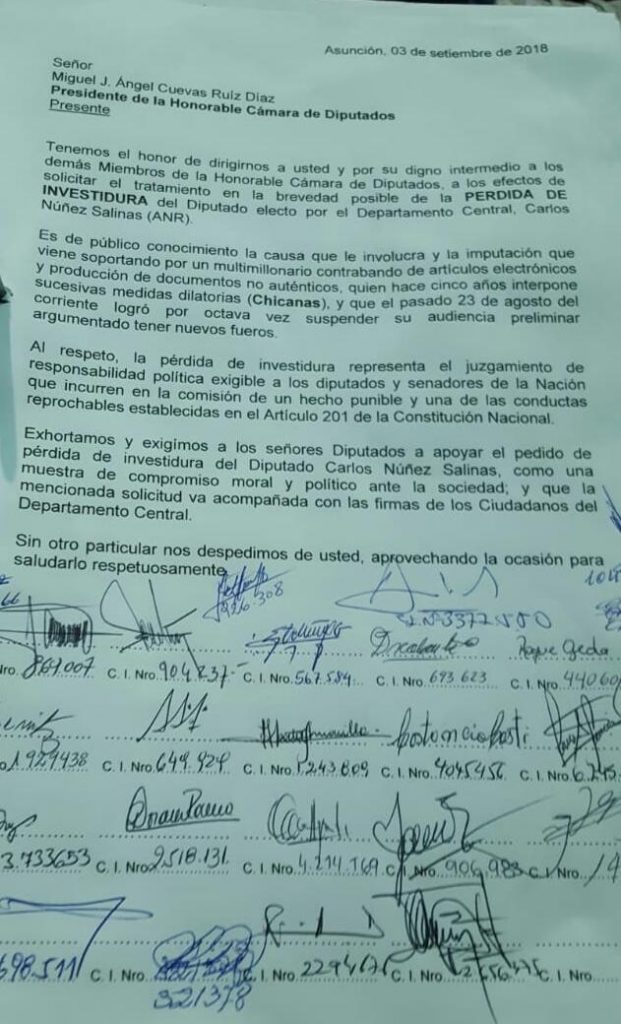 Asunción, 03 de setiembre de 2018
Señor
Miguel J. Ángel Cuevas Ruíz Díaz
Presidente de la Honorable Cámara de Diputados
Presente
Tenemos el honor de dirigirnos a usted y por su digno intermedio a los
demás Miembros de la Honorable Cámara de Diputados, a los efectos de
solicitar el tratamiento en la brevedad posible de la PERDIDA DE
INVESTIDURA del Diputado electo por el Departamento Central, Carlos
Núñez Salinas (ANR).
Es de público conocimiento la causa que le involucra y la imputación que
viene soportando por un multimillonario contrabando de artículos electrónicos
y producción de documentos no auténticos, quien hace cinco años interpone
sucesivas medidas dilatorias (Chicanas), y que el pasado 23 de agosto del
corriente logró por octava vez suspender su audiencia preliminar
argumentado tener nuevos fueros.
Al respeto, la pérdida de investidura representa el juzgamiento de
responsabilidad política exigible a los diputados y senadores de la Nación
que incurren en la comisión de un hecho punible y una de las conductas
reprochables establecidas en el Artículo 201 de la Constitución Nacional.
Exhortamos y exigimos a los señores Diputados a apoyar el pedido de
pérdida de investidura del Diputado Carlos Núñez Salinas, como una
muestra de compromiso moral y político ante la sociedad; y que la
mencionada solicitud va acompañada con las firmas de los Ciudadanos del
Departamento Central.
Sin otro particular nos despedimos de usted, aprovechando la ocasión para
saludarlo respetuosamente
Nro. 861.007 C. I. Nro. 904.237- C. I. Nro. 567.584 C. I. Nro. 693 623 C. I. Nro. 44060
1.929438 C. I. Nro. 649.924 C. I. Nro. 1.243.809 C. I. Nro. 4045456 C. I. Nro. 6.245
3.733653 C. I. Nro. 2518.131. C. I. Nro. 4.214.769 C. I. Nro. 906.983 C. I. Nro. 14
698.511 C. I. Nro. C. I. Nro. 2294675 C. I. Nro. C. I. Nro.
321378